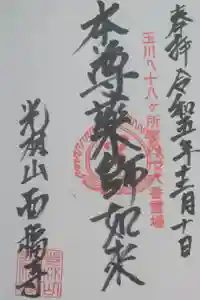 奉拝 令和五年十二月十日
玉川八十八ヶ所
番霊場
本尊薬師如来
光明山西福寺